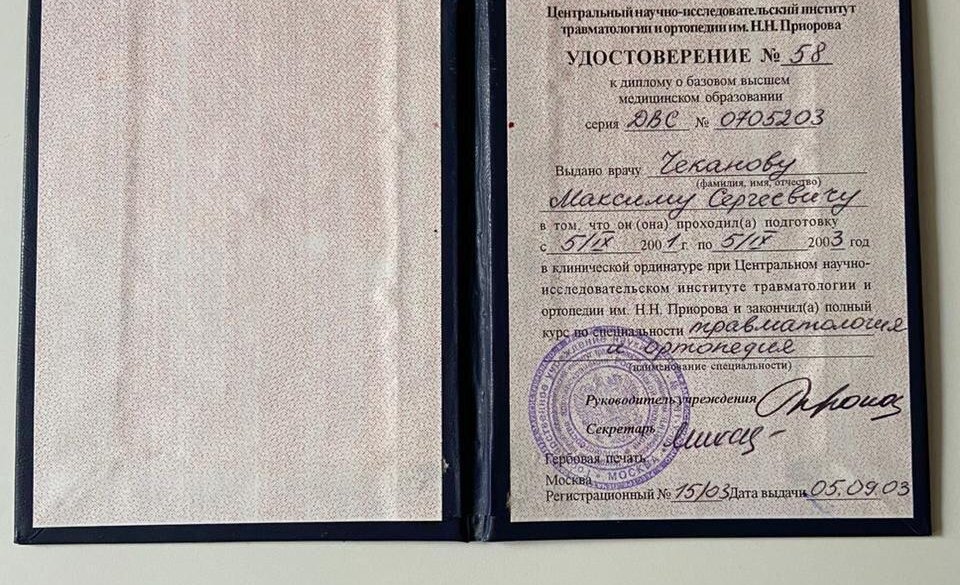 Центральный научно-исследовательский институт
травматологии и ортопедии им. Н.Н. Приорова
УДОСТОВЕРЕНИЕ № 58
к диплому о базовом высшем
медицинском образовании
серия ДВС № 0705203
Выдано врачу Чеканову
(фамилия, имя, отчество)
Максиму Сергеевичу
в том, что он (она) проходил(а) подготовку
с 5/IX 2001 г. по 5/IX 2003 год
в клинической ординатуре при Центральном научно-
исследовательском институте травматологии и
ортопедии им. Н.Н. Приорова и закончил(а) полный
курс по специальности травматология
и ортопедия
(наименование специальности)
Руководитель учреждения
Секретарь
Гербовая печать
МОСКВА
Москва
Регистрационный № 15/03 Дата выдачи 05.09.03